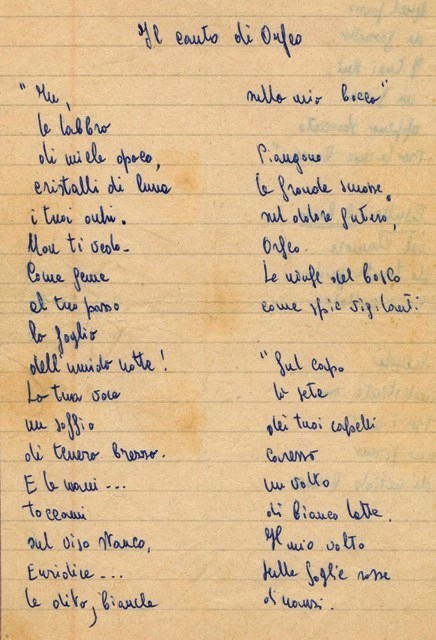 Il canto di Orfeo
le labbra
di miele opaco,
cristalli di luna
i tuoi
Non ti vedo-
Come geme
al tuo passo
la foglia
dell'umida notte!
La tua voce
un soffio
di tenera brezza.
E le mani ---
toccami
sul viso stanco,
Euridice ---
le dita, bianche
sulla mia bocca"
Piangono
le fronde smosse
sul dolore
Orfeo.
Le ninfe del bosco
come spie vigilanti:
"Sul capo
la seta
dei tuoi capelli
un volto
di bianco latte.
Il mio volto
sulle foglie rosse
di